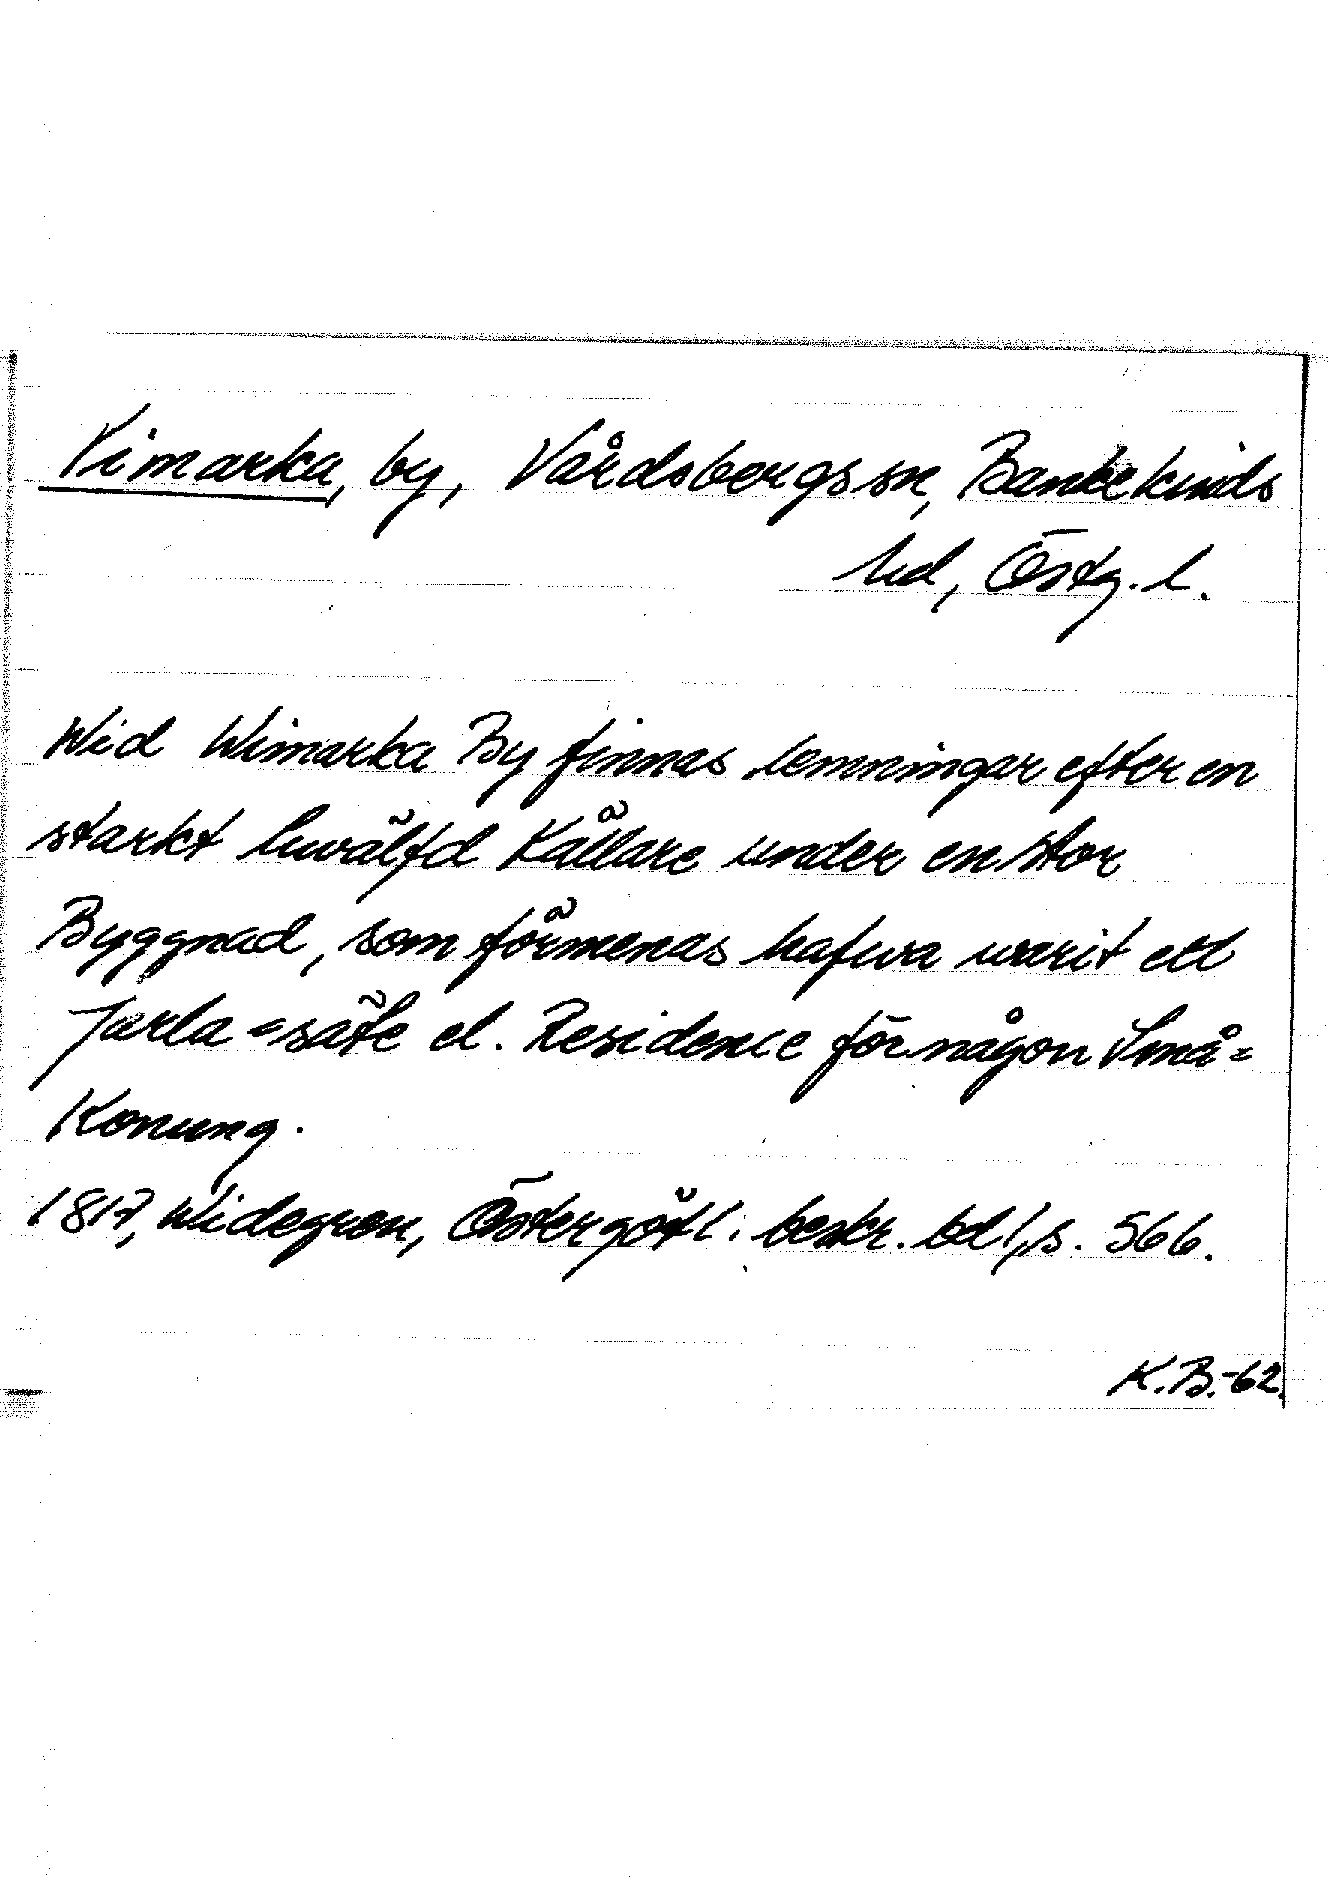 Vimarka, by, Vårdsbergs sn, Bankekinds
hd, Östg. l.
Wid Wimarka By finnas lemningar efter en
starkt huwälfd Källare under en stor
Byggnad, som förmenas hafwa warit ett
Jarla=säte el. Residence för någon Små=
Konung.
1817, Widegren, Östergötl. beskr. bd 1, s. 566.
K.B.-62.